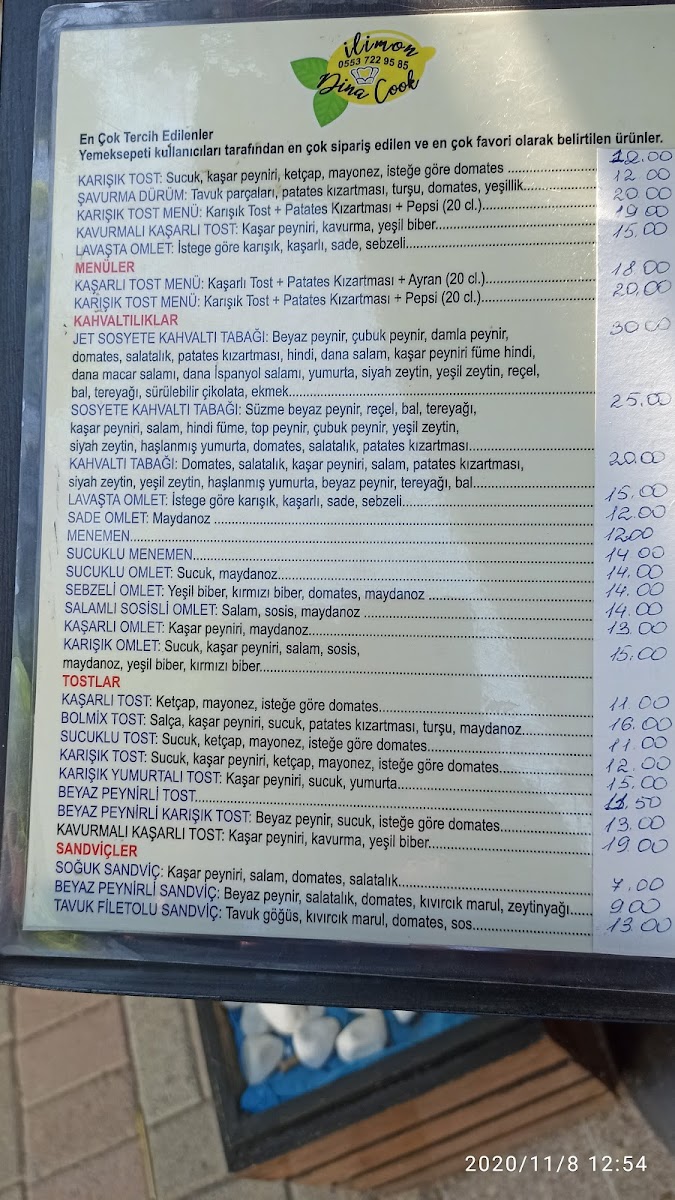 ilimon
0553 722 95 85
Dina Cook
En Çok Tercih Edilenler
Yemeksepeti kullanıcıları tarafından en çok sipariş edilen ve en çok favori olarak belirtilen ürünler.
KARIŞIK TOST: Sucuk, kaşar peyniri, ketçap, mayonez, isteğe göre domates ........ 12.00
ŞAVURMA DÜRÜM: Tavuk parçaları, patates kızartması, turşu, domates, yeşillik........ 12 00
KARIŞIK TOST MENÜ: Karışık Tost + Patates Kızartması + Pepsi (20 cl.)........ 20 00
KAVURMALI KAŞARLI TOST: Kaşar peyniri, kavurma, yeşil biber........ 19 00
LAVAŞTA OMLET: İstege göre karışık, kaşarlı, sade, sebzeli........ 15.00
MENÜLER
KAŞARLI TOST MENÜ: Kaşarlı Tost + Patates Kızartması + Ayran (20 cl.)........ 18 00
KARIŞIK TOST MENÜ: Karışık Tost + Patates Kızartması + Pepsi (20 cl.)........ 20,00
KAHVALTILIKLAR
JET SOSYETE KAHVALTI TABAĞI: Beyaz peynir, çubuk peynir, damla peynir, 30 00
domates, salatalık, patates kızartması, hindi, dana salam, kaşar peyniri füme hindi,
dana macar salamı, dana İspanyol salamı, yumurta, siyah zeytin, yeşil zeytin, reçel,
bal, tereyağı, sürülebilir çikolata, ekmek........
SOSYETE KAHVALTI TABAĞI: Süzme beyaz peynir, reçel, bal, tereyağı, 25.00
kaşar peyniri, salam, hindi füme, top peynir, çubuk peynir, yeşil zeytin,
siyah zeytin, haşlanmış yumurta, domates, salatalık, patates kızartması........
KAHVALTI TABAĞI: Domates, salatalık, kaşar peyniri, salam, patates kızartması, 20.00
siyah zeytin, yeşil zeytin, haşlanmış yumurta, beyaz peynir, tereyağı, bal........
LAVAŞTA OMLET: İstege göre karışık, kaşarlı, sade, sebzeli........ 15.00
SADE OMLET: Maydanoz ........ 12.00
MENEMEN........ 1200
SUCUKLU MENEMEN........ 14 00
SUCUKLU OMLET: Sucuk, maydanoz........ 14.00
SEBZELİ OMLET: Yeşil biber, kırmızı biber, domates, maydanoz ........ 14.00
SALAMLI SOSİSLİ OMLET: Salam, sosis, maydanoz ........ 14.00
KAŞARLI OMLET: Kaşar peyniri, maydanoz........ 13.00
KARIŞIK OMLET: Sucuk, kaşar peyniri, salam, sosis, 15.00
maydanoz, yeşil biber, kırmızı biber........
TOSTLAR
KAŞARLI TOST: Ketçap, mayonez, isteğe göre domates........ 11.00
BOLMİX TOST: Salça, kaşar peyniri, sucuk, patates kızartması, turşu, maydanoz........ 16.00
SUCUKLU TOST: Sucuk, ketçap, mayonez, isteğe göre domates........ 11.00
KARIŞIK TOST: Sucuk, kaşar peyniri, ketçap, mayonez, isteğe göre domates........ 12.00
KARIŞIK YUMURTALI TOST: Kaşar peyniri, sucuk, yumurta........ 15.00
BEYAZ PEYNİRLİ TOST........ 11.50
BEYAZ PEYNİRLİ KARIŞIK TOST: Beyaz peynir, sucuk, isteğe göre domates........ 13.00
KAVURMALI KAŞARLI TOST: Kaşar peyniri, kavurma, yeşil biber........ 19.00
SANDVİÇLER
SOĞUK SANDVİÇ: Kaşar peyniri, salam, domates, salatalık........ 7.00
BEYAZ PEYNİRLİ SANDVİÇ: Beyaz peynir, salatalık, domates, kıvırcık marul, zeytinyağı..... 900
TAVUK FİLETOLU SANDVİÇ: Tavuk göğüs, kıvırcık marul, domates, sos........ 13.00
2020/11/8 12:54